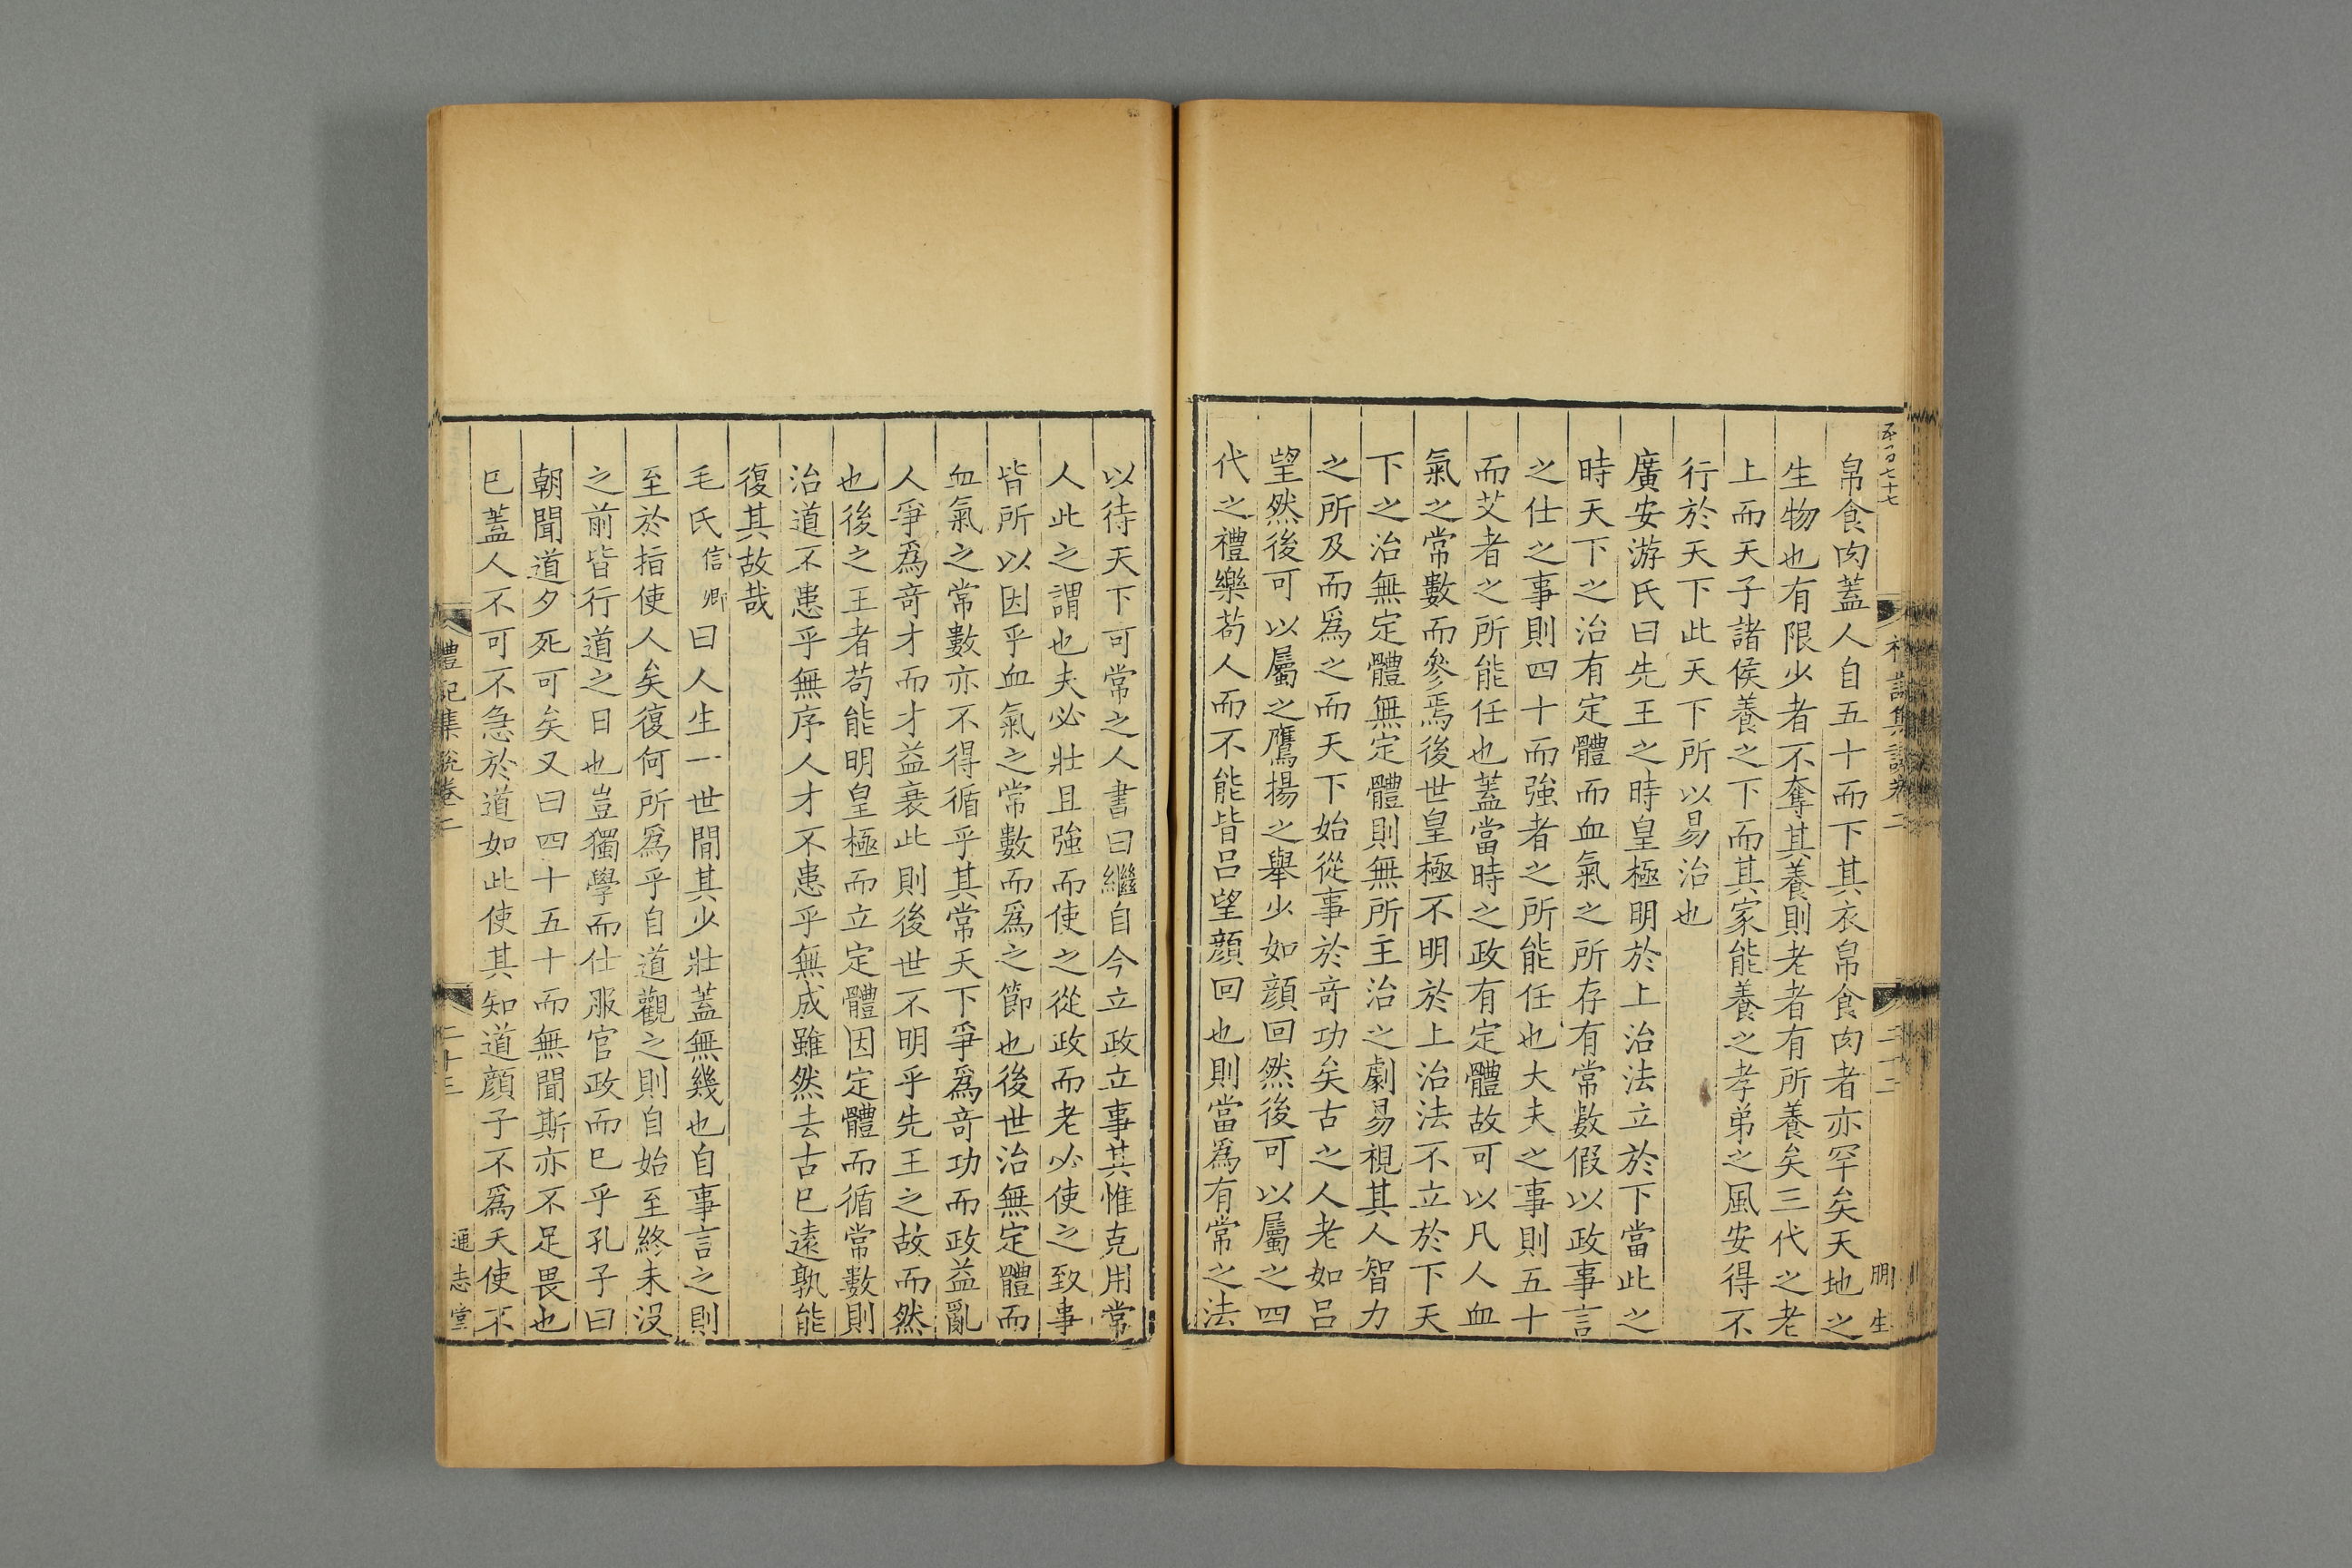 帛食肉蓋人自五十而下其衣帛食肉者亦罕矣天地之
生物也有限少者不奪其養則老者有所養矣三代之老
上而天子諸侯養之下而其家能養之孝弟之風安得不
行於天下此天下所以易治也
廣安游氏曰先王之時皇極明於上治法立於下當此之
時天下之治有定體而血氣之所存有常數假以政事言
之仕之事則四十而強者之所能任也大夫之事則五十
而艾者之所能任也蓋當時之政有定體故可以凡人血
氣之常數而參焉後世皇極不明於上治法不立於下天
下之治無定體無定體則無所主治之劇易視其人智力
之所及而爲之而天下始從事於竒功矣古之人老如呂
望然後可以屬之鷹揚之舉少如顔回然後可以屬之四
代之禮樂苟人而不能皆呂望顔回也則當爲有常之法
以待天下可常之人書曰繼自今立政立事其惟克用常
人此之謂也夫必壯且強而使之從政而老必使之致事
皆所以因乎血氣之常數而爲之節也後世治無定體而
血氣之常數亦不得循乎其常天下爭爲竒功而政益亂
人爭爲竒才而才益衰此則後世不明乎先王之故而然
也後之王者苟能明皇極而立定體因定體而循常數則
治道不患乎無序人才不患乎無成雖然去古已遠孰能
復其故哉
毛氏信卿曰人生一世間其少壯蓋無幾也自事言之則
至於指使人矣復何所爲乎自道觀之則自始至終未沒
之前皆行道之日也豈獨學而仕服官政而已乎孔子曰
朝聞道夕死可矣又曰四十五十而無聞斯亦不足畏也
已蓋人不可不急於道如此使其知道顔子不爲夭使不
禮記集說卷二
二十三
通志堂